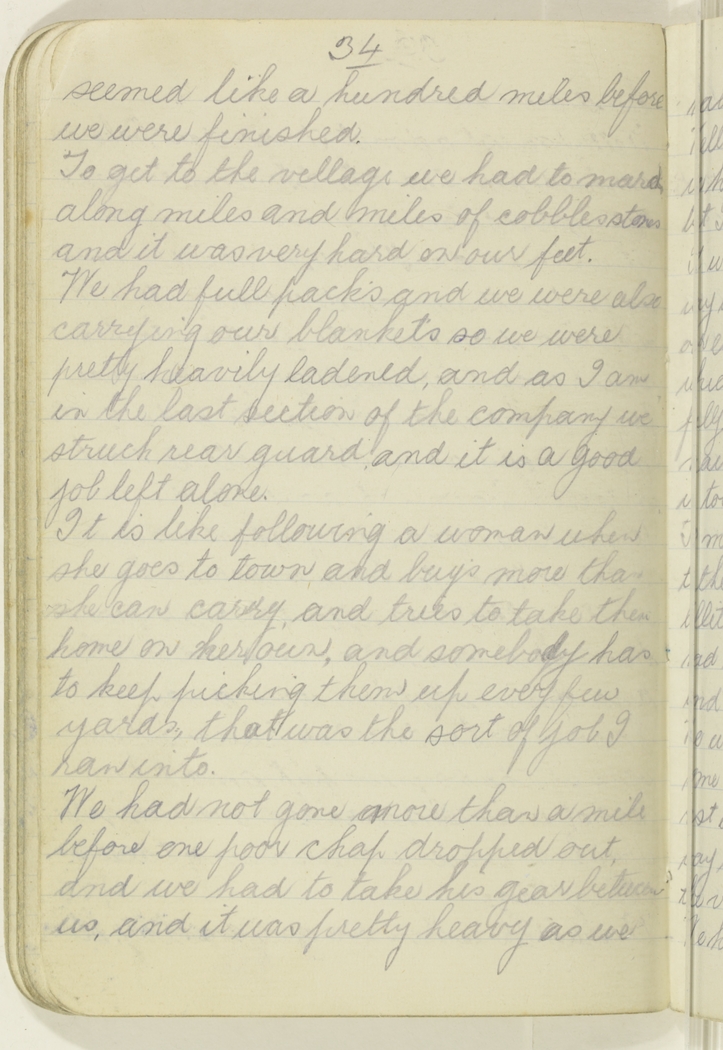 34
seemed like a hundred miles before
we were finished.
To get to the village we had to march
along miles and miles of cobblestones
and it was very hard on our feet.
We had full packs and we were also
carrying our blankets so we were
pretty heavily ladened, and as I am
in the last section of the company we
struck rear guard, and it is a good
job left alone.
It is like following a woman when
she goes to town, and buys more than
she can carry, and tries to take them
home on her own, and somebody has
to keep picking them up every few
yards, that was the sort of job I
ran into.
We had not gone more than a mile
before one poor chap dropped out,
and we had to take his gear between
us, and it was pretty heavy as we